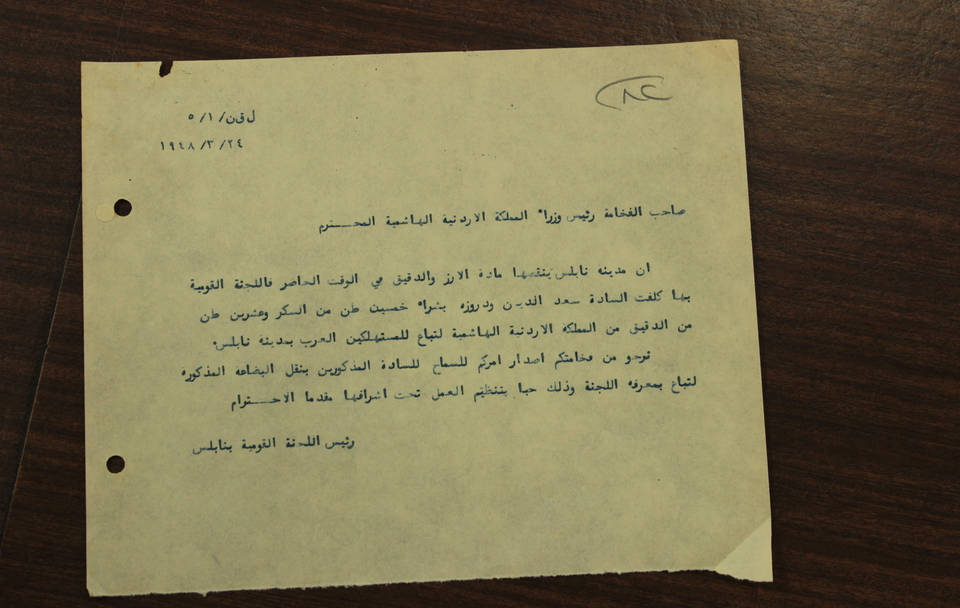 ل ق ن/ ١/ ٥
٢٤/ ٣/ ١٩٤٨
صاحب الفخامة رئيس وزراء المملكة الاردنية الهاشمية المحـــترم
ان مدينة نابلس ينقصها مادة الارز والدقيق في الوقت الحاضر فاللجنة القومية
بها كلفت السادة سعد الدين ودروزه بشراء خمسين طن من السكر وعشرين طن
من الدقيق من المملكة الاردنية الهاشمية لتباع للمستهلكين العرب بمدينة نابلس.
نرجو من فخامتكم اصدار امركم للسماح للسادة المذكورين بنقل البضاعة المذكوره
لتباع بمعرفة اللجنة وذلك حبا بتنظيم العمل تحت اشرافها مقدما الاحـــترام
رئيس اللجنة القومية بنابلس